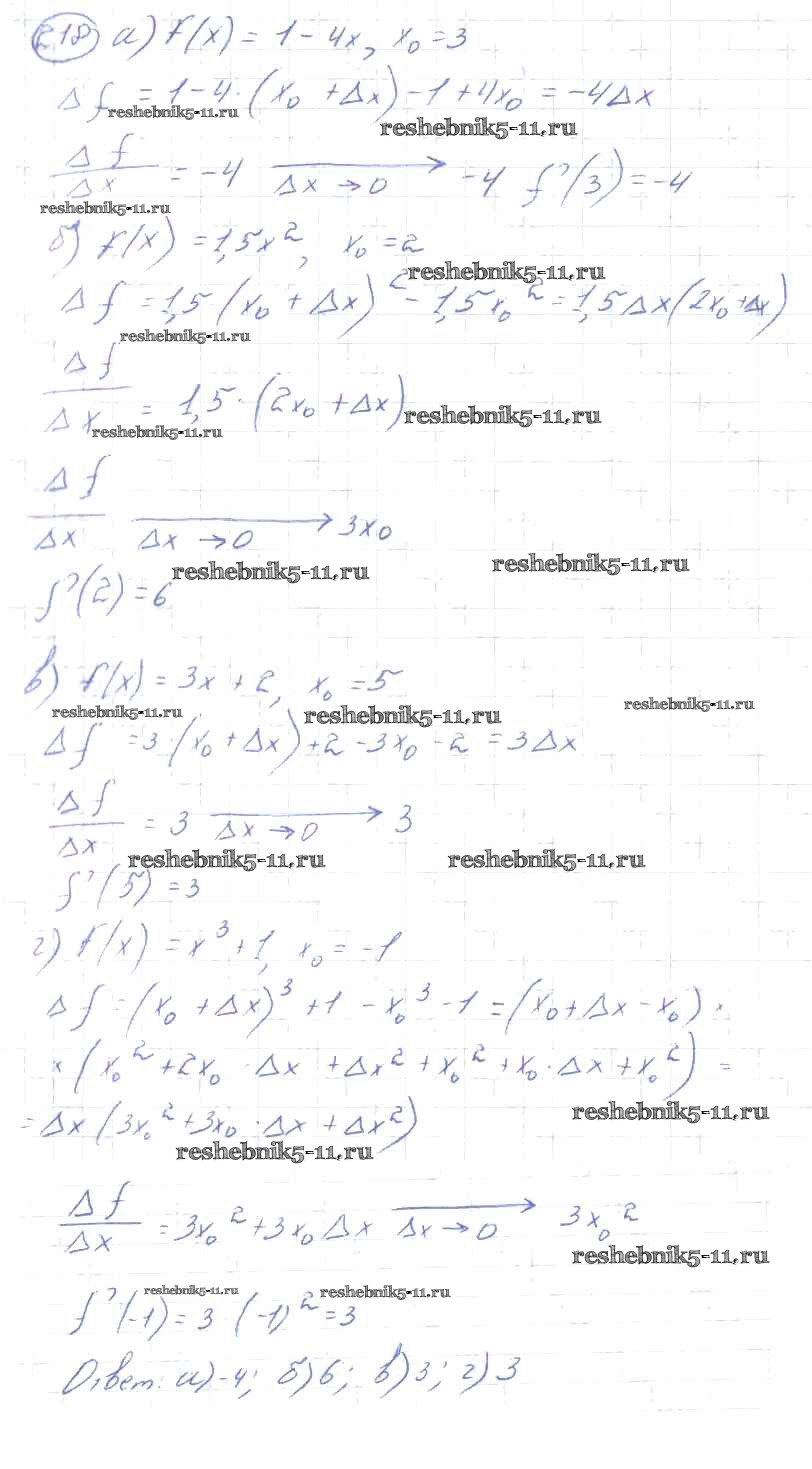 218 а) f(x) = 1 - 4x, x₀ = 3
Δf = 1 - 4·(x₀ + Δx) - 1 + 4x₀ = -4Δx
reshebnik5-11.ru
reshebnik5-11.ru
Δf/Δx = -4 ⟶ Δx→0 -4 f'(3) = -4
reshebnik5-11.ru
б) f(x) = 1,5x², x₀ = 2
reshebnik5-11.ru
Δf = 1,5(x₀ + Δx)² - 1,5x₀² = 1,5Δx(2x₀ + Δx)
reshebnik5-11.ru
Δf/Δx = 1,5·(2x₀ + Δx)
reshebnik5-11.ru
reshebnik5-11.ru
Δf/Δx ⟶ Δx→0 3x₀
reshebnik5-11.ru
reshebnik5-11.ru
f'(2) = 6
в) f(x) = 3x + 2, x₀ = 5
reshebnik5-11.ru
reshebnik5-11.ru
reshebnik5-11.ru
Δf = 3·(x₀ + Δx) + 2 - 3x₀ - 2 = 3Δx
Δf/Δx = 3 ⟶ Δx→0 3
reshebnik5-11.ru
reshebnik5-11.ru
f'(5) = 3
г) f(x) = x³ + 1, x₀ = -1
Δf = (x₀ + Δx)³ + 1 - x₀³ - 1 = (x₀ + Δx - x₀) ×
× (x₀² + 2x₀·Δx + Δx² + x₀² + x₀·Δx + x₀²) =
= Δx(3x₀² + 3x₀·Δx + Δx²)
reshebnik5-11.ru
reshebnik5-11.ru
Δf/Δx = 3x₀² + 3x₀Δx ⟶ Δx→0 3x₀²
reshebnik5-11.ru
reshebnik5-11.ru
reshebnik5-11.ru
f'(-1) = 3 (-1)² = 3
Ответ: а) -4; б) 6; в) 3; г) 3